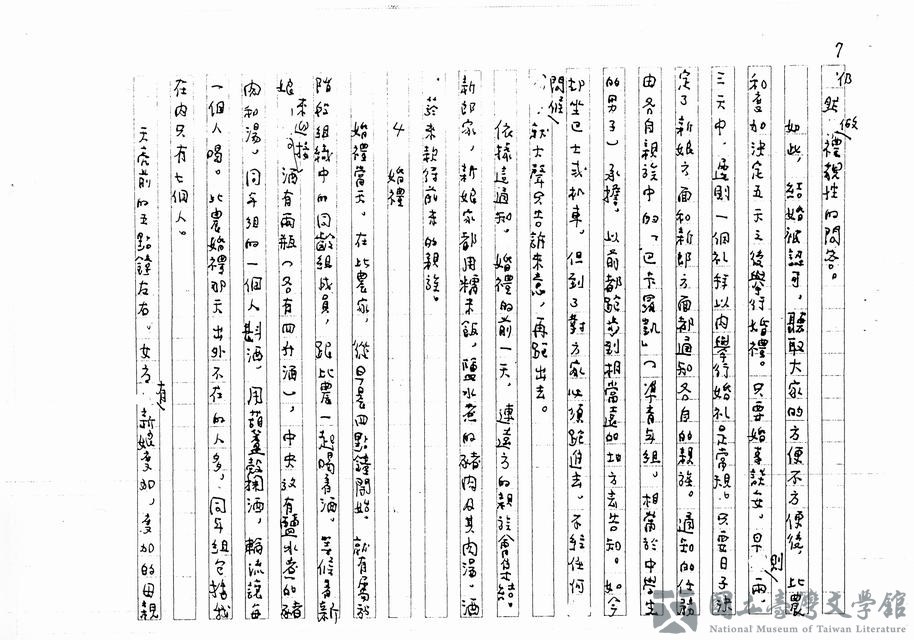 7
仍然做禮貌性的問答。
如此,結婚被認可,聽取大家的方便不方便後,比農
和度加決定五天之後舉行婚禮。只要婚事談妥,早則兩、
三天中,遲則一個礼拜以內舉行婚礼是常規。只要日子決
定了新娘方面和新郎方面都通知各自的親族。通知的任務
由各自親族中的「巴卡羅凱」(準青年組。相當於中學生
的男子)承擔。以前都跑步到相當遠的地方去告知。如今
却坐巴士或机車。但到了對方家必須跑進去。不經任何
問候,就大聲只告訴來意,再跑出去。
依據這通知,婚禮的前一天,連遠方的親族會集結。
新郎家,新娘家都用糯米飯,鹽水煮的豬肉及其肉湯,酒
等來款待前來的親族。
4 婚禮
婚禮當天。在比農家,從早晨四點鐘開始。就有屬於
階級組織中的同齡組成員,跟比農一起喝着酒。等候着新
娘來迎接。酒有兩瓶(各有四升酒),中央放有鹽水煮的豬
肉和湯,同年組的一個人斟酒,用葫蘆殼掬酒,輪流讓每
一個人喝。比農婚禮那天出外不在的人多,同年組包括我
在內只有七個人。
天亮前的五點鐘左右。女方有新娘度加,度加的母親
國立臺灣文學館
National Museum of Taiwan Literature